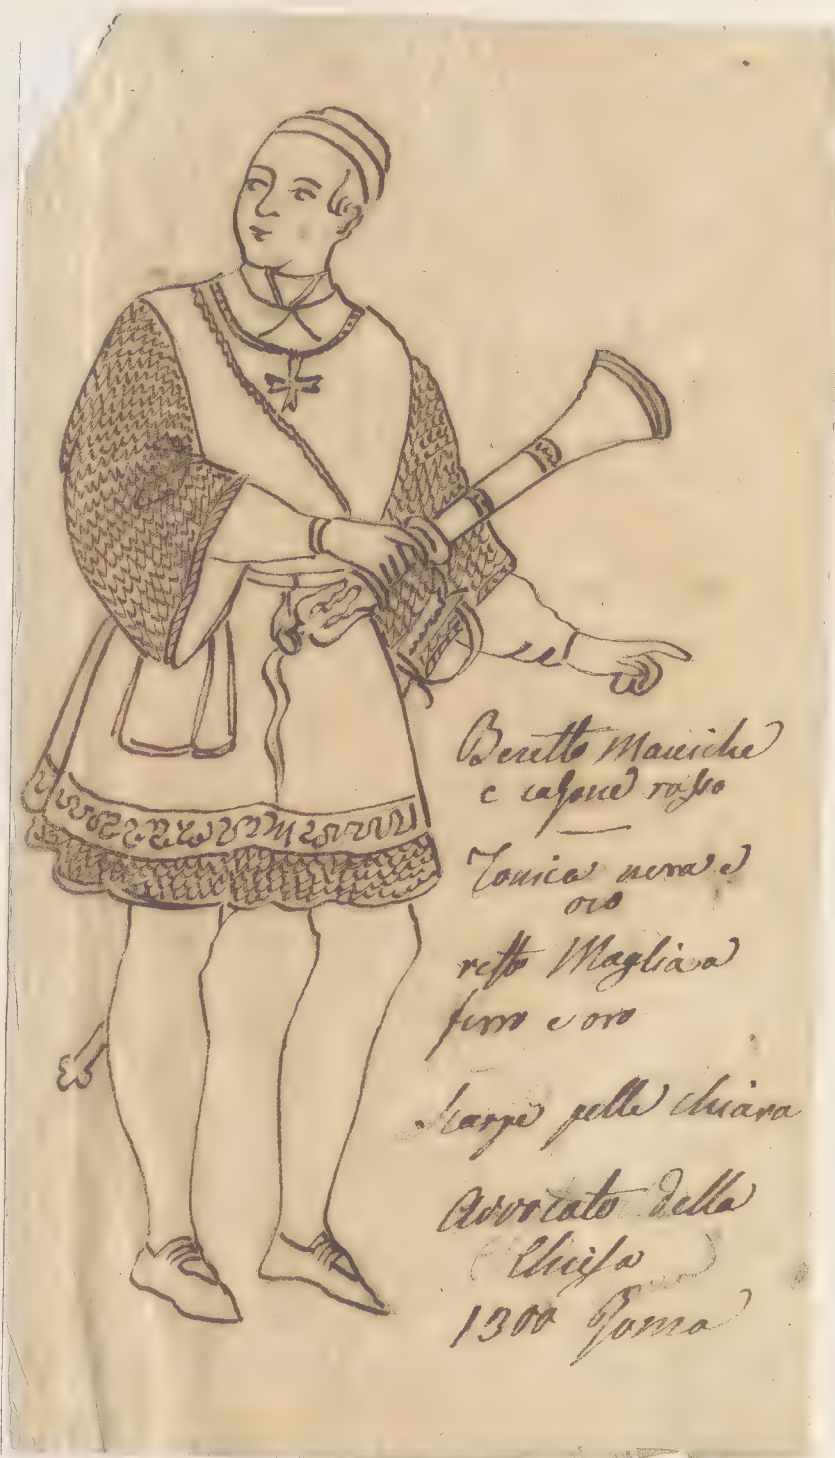 Beretto Maniche
e calzone rosso
Tonica nera e
oro
resto Maglia a
ferro e oro
scarpe pelle chiara
Avvocato della
Chiesa
1300 Roma